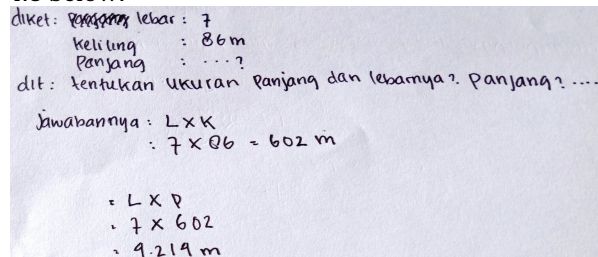 diket: lebar : 7
Keliling : 86 m
Panjang : ...?
dit: tentukan ukuran Panjang dan lebarnya? Panjang? ....
Jawabannya : L X K
: 7 X 86 = 602 m
= L X P
: 7 X 602
= 9.219 m